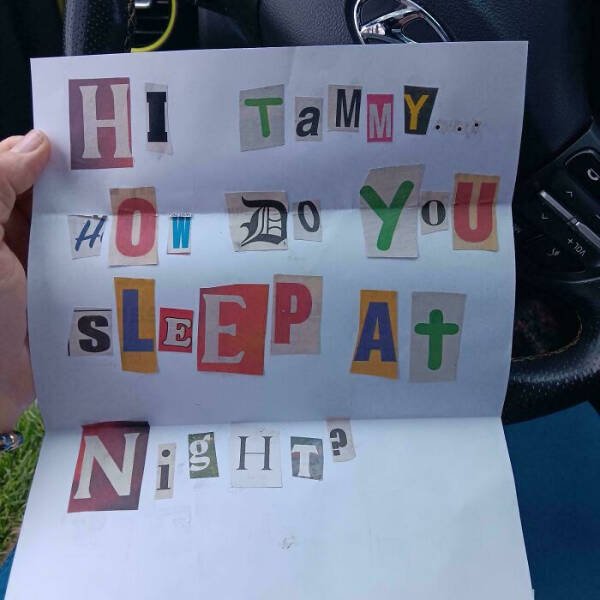 HI TaMMY...
HOW DO YoU
SLEEP At
NigHT?
VOL +